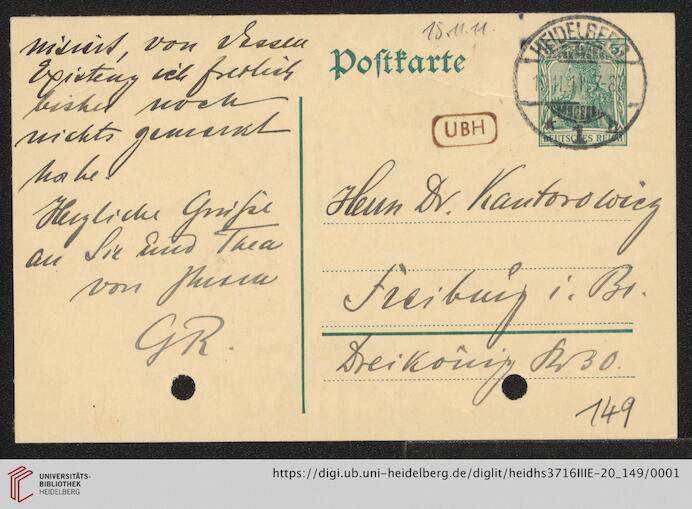 nisiert, von dessen
Existenz ich freilich
bisher noch
nichts gemerkt
habe.
Herzliche Grüße
an Sie und Thea
von Ihrem
GR.
18.11.11.
Postkarte
UBH
HEIDELBERG
1
DEUTSCHES REICH
Herrn Dr. Kantorowicz
Freiburg i. Br.
Dreikönig Str 30.
149
UNIVERSITÄTS-
BIBLIOTHEK
HEIDELBERG
https://digi.ub.uni-heidelberg.de/diglit/heidhs3716IIIE-20_149/0001